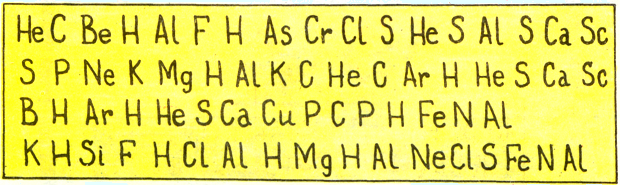 He C Be H Al F H As Cr Cl S He S Al S Ca Sc
S P Ne K Mg H Al K C He C Ar H He S Ca Sc
B H Ar H He S Ca Cu P C P H Fe N Al
K H Si F H Cl Al H Mg H Al Ne Cl S Fe N Al